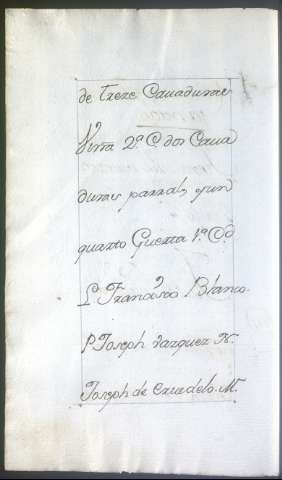 de trexe Cauaduras
Viña 2ª C. dos Caua
duras parral, y un
quarto Guerta 1ª C.
L. Francisco Blanco.
P. Joseph Vazquez N.
Joseph de Cruz delo. M.